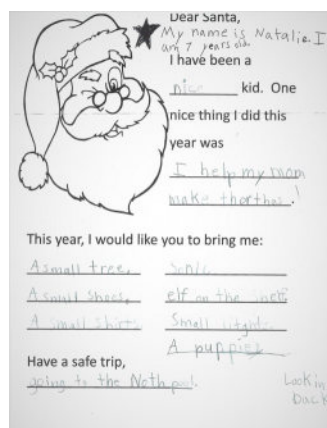 Dear Santa,
My name is Natalie. I
am 7 years old.
I have been a
nice kid. One
nice thing I did this
year was
I help my mom
make thorthas.!
This year, I would like you to bring me:
A small tree, Sonic
A small shoes, elf on the shelf
A small shirts Small lights
A puppies
Have a safe trip,
going to the Noth pool.
Look in
back